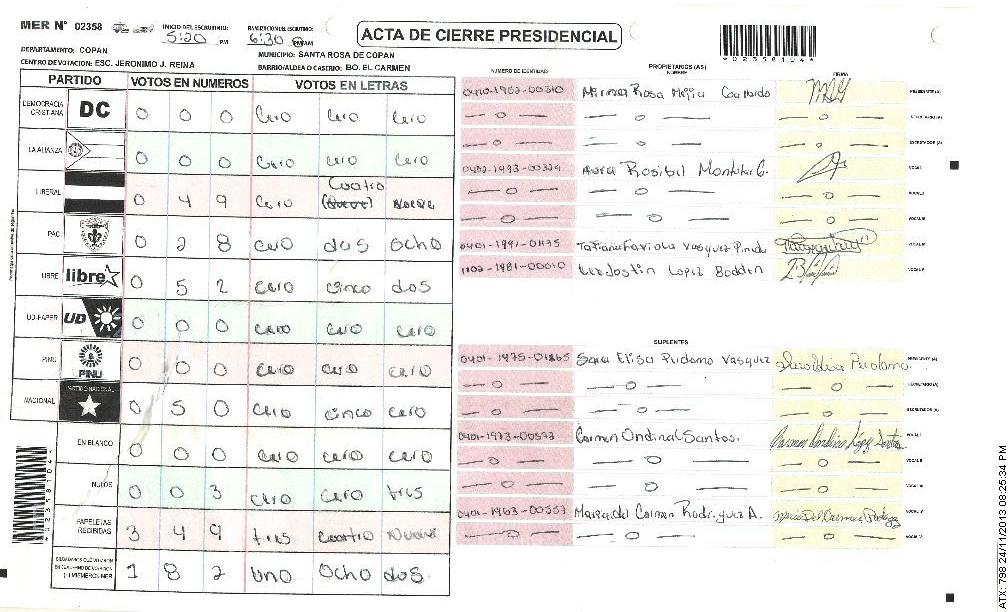 MER N° 02358
INICIO DEL ESCRUTINIO: 5:20 PM
FINALIZACION DEL ESCRUTINIO: 6:30 PM/AM
ACTA DE CIERRE PRESIDENCIAL
*02358104*
DEPARTAMENTO: COPAN
MUNICIPIO: SANTA ROSA DE COPAN
CENTRO DE VOTACION: ESC. JERONIMO J. REINA
BARRIO/ALDEA O CASERIO: BO. EL CARMEN
PARTIDO VOTOS EN NUMEROS VOTOS EN LETRAS
DEMOCRACIA CRISTIANA DC 0 0 0 Cero Cero Cero
LA ALIANZA 0 0 0 Cero Cero Cero
LIBERAL 0 4 9 Cero Cuatro (Nueve) Nueve
PAC 0 2 8 Cero dos ocho
LIBRE libre 0 5 2 Cero cinco dos
UD-FAPER UD 0 0 0 Cero Cero Cero
PINU PINU 0 0 0 Cero Cero Cero
NACIONAL PARTIDO NACIONAL 0 5 0 Cero cinco cero
EN BLANCO 0 0 0 Cero Cero Cero
NULOS 0 0 3 Cero Cero tres
PAPELETAS RECIBIDAS 3 4 9 tres cuatro Nueve
1 8 2 Uno Ocho dos.
*02358104*
NUMERO DE IDENTIDAD PROPIETARIOS (AS) NOMBRE FIRMA
Rosa Mejia PRESIDENTE (A)
— 0 — — 0 — — 0 — SECRETARIO (A)
— 0 — — 0 — — 0 — ESCRUTADOR (A)
VOCAL I
— 0 — — 0 — — 0 — VOCAL II
— 0 — — 0 — — 0 — VOCAL III
0401-1991-01135 Vasquez VOCAL IV
1102-1981-00010 Lopez Bodden VOCAL V
SUPLENTES
0401-1975-01865 Sara Elisa Perdomo Vasquez PRESIDENTE (A)
— 0 — — 0 — — 0 — SECRETARIO (A)
— 0 — — 0 — — 0 — ESCRUTADOR (A)
0401-1973-00573 Carmen Ondina Santos. VOCAL I
— 0 — — 0 — — 0 — VOCAL II
— 0 — — 0 — — 0 — VOCAL III
0401-1963-00557 Maria del Carmen Rodriguez A. VOCAL IV
— 0 — — 0 — — 0 — VOCAL V
ATX: 798 24/11/2013 08:25:34 PM